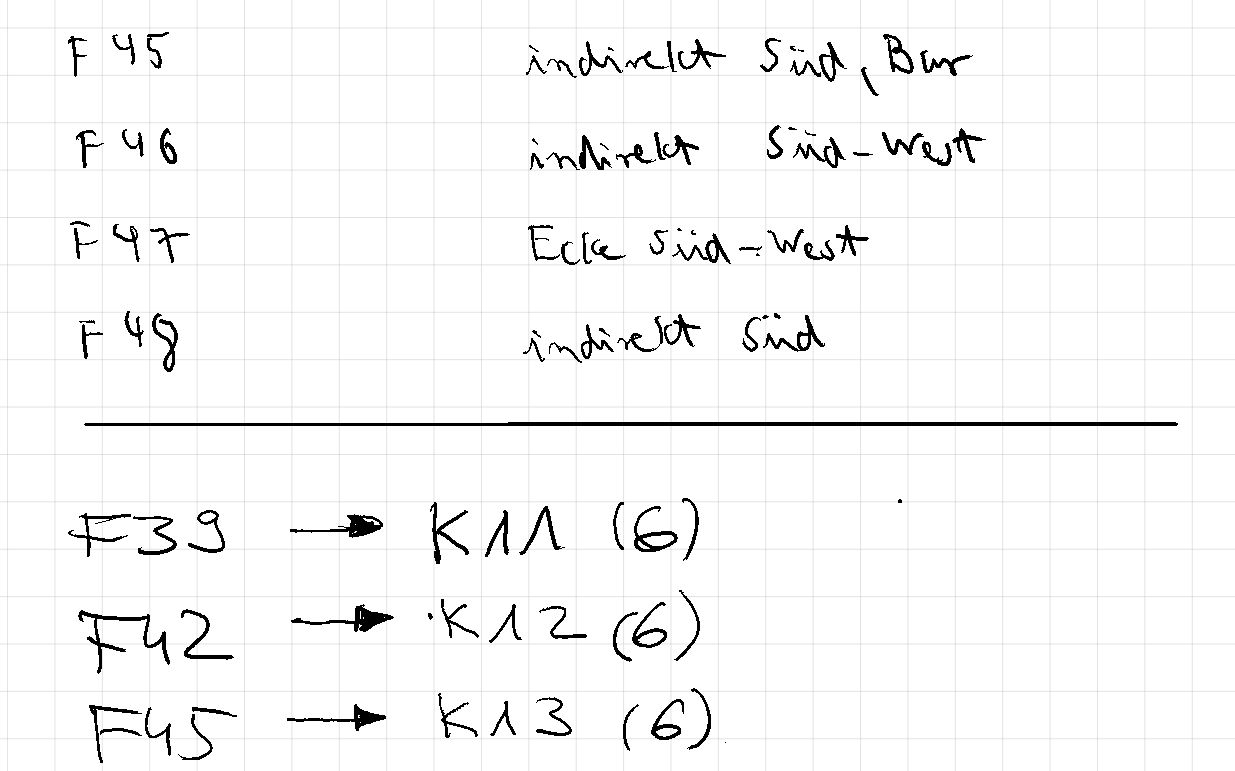 F 45 indirekt Süd, Bar
F 46 indirekt Süd-West
F 47 Ecke Süd-West
F 48 indirekt Süd
F39 → K11 (6)
F42 → K12 (6)
F45 → K13 (6)